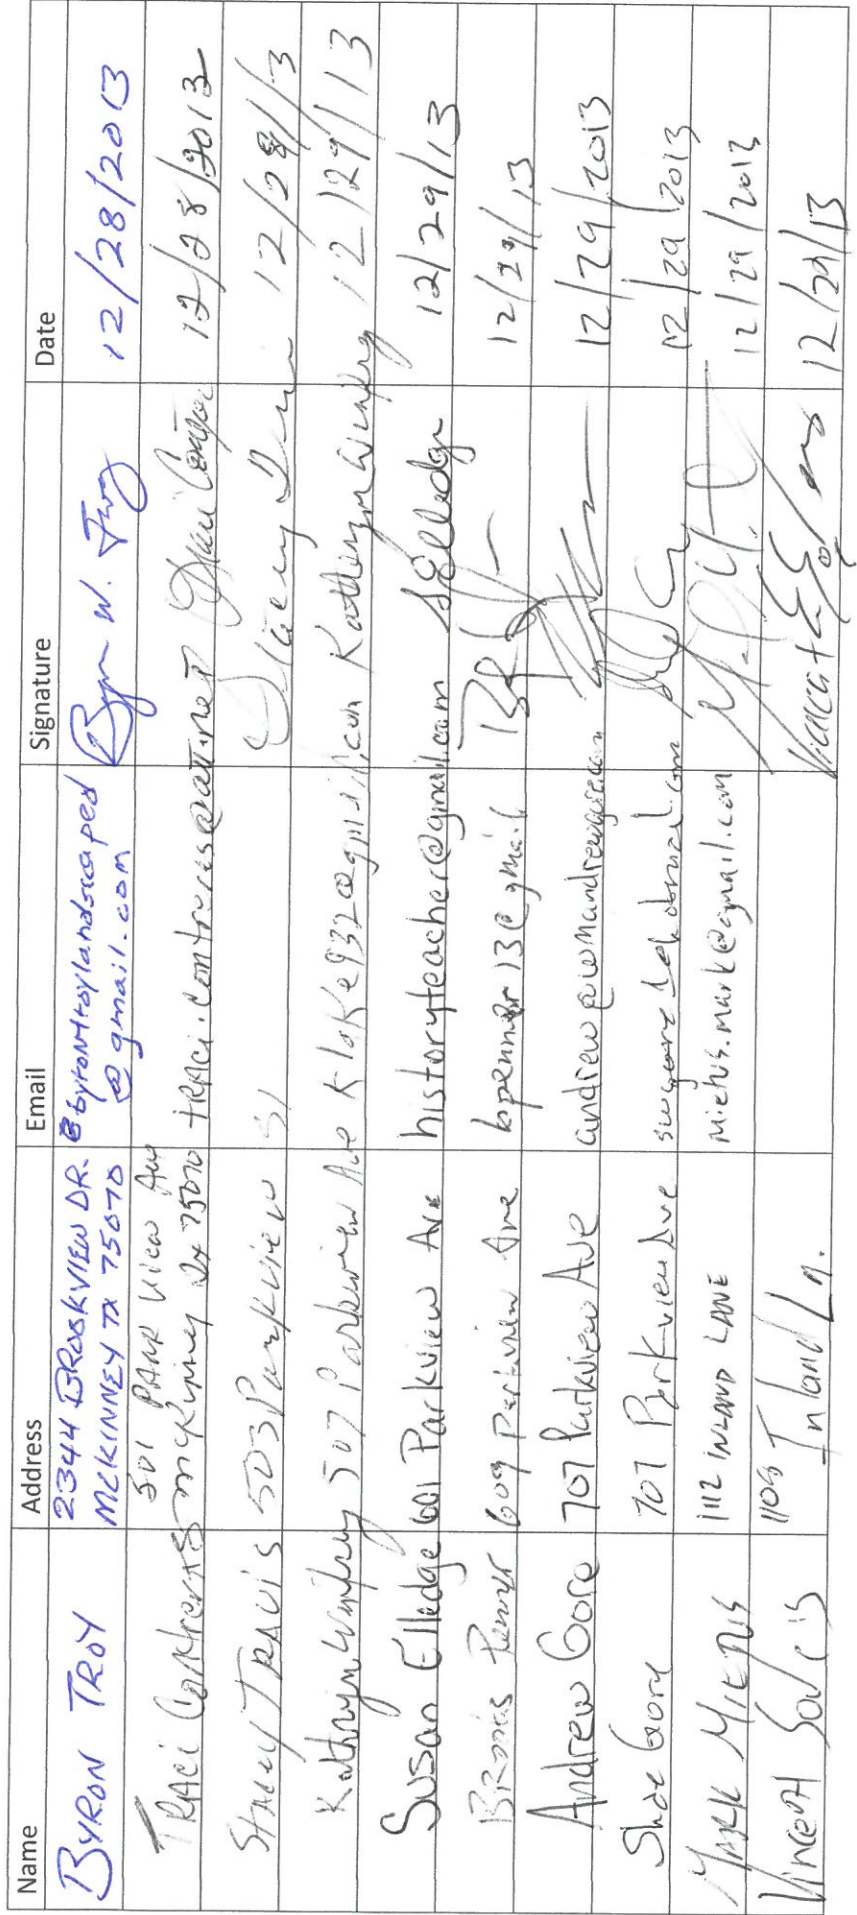 Name Address Email Signature Date
BYRON TROY 2344 BROOKVIEW DR. MCKINNEY TX 75070 byrontroylandscaped@gmail.com Byron W. Troy 12/28/2013
TRACi Contreras 501 PARK View Ave McKinney Tx 75070 TRACi.contreras@att.net Traci Contreras 12/28/2013
Stacey TRAVIS 503 Parkview Stacey 12/28/13
Kathryn Winfrey 507 Parkview Ave kloke932@gmail.com Kathryn Winfrey 12/29/13
Susan Elledge 601 Parkview Ave historyteacher@gmail.com S Elledge 12/29/13
Penner 609 Parkview Ave bpenner13@gmail 12/29/13
Andrew Gore 707 Parkview Ave 12/29/2013
Gore 707 Parkview Ave 12/29/2013
MARK MIETUS 1112 INLAND LANE mietus.mark@gmail.com 12/29/2013
Vincent 1109 Inland Ln. Vincent 12/29/13